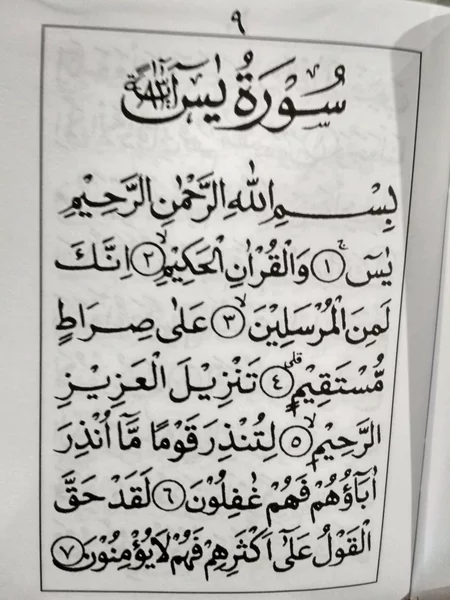 ٩
سُوْرَةُ يٰسٓ
بِسْمِ اللّٰهِ الرَّحْمٰنِ الرَّحِيْمِ
يٰسٓ ۚ ﴿١﴾ وَالْقُرْاٰنِ الْحَكِيْمِۙ ﴿٢﴾ اِنَّكَ
لَمِنَ الْمُرْسَلِيْنَۙ ﴿٣﴾ عَلٰى صِرَاطٍ
مُّسْتَقِيْمٍۗ ﴿٤﴾ تَنْزِيْلَ الْعَزِيْزِ
الرَّحِيْمِۙ ﴿٥﴾ لِتُنْذِرَ قَوْمًا مَّآ اُنْذِرَ
اٰبَآؤُهُمْ فَهُمْ غٰفِلُوْنَ ﴿٦﴾ لَقَدْ حَقَّ
الْقَوْلُ عَلٰٓى اَكْثَرِهِمْ فَهُمْ لَايُؤْمِنُوْنَ ﴿٧﴾